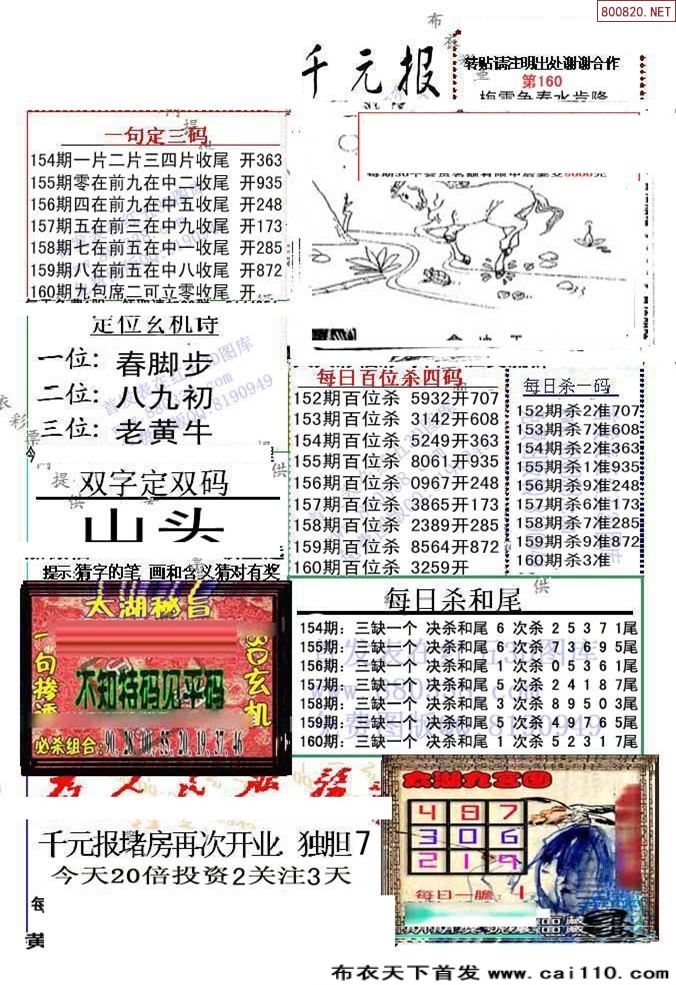 800820.NET
千元报
转贴请注明出处谢谢合作
第160
一句定三码
154期一片二片三四片收尾 开363
155期零在前九在中二收尾 开935
156期四在前九在中五收尾 开248
157期五在前三在中九收尾 开173
158期七在前五在中一收尾 开285
159期八在前五在中八收尾 开872
160期九包席二可立零收尾 开
定位玄机诗
一位: 春脚步
二位: 八九初
三位: 老黄牛
双字定双码
山头
提示猜字的笔 画和含义猜对有奖
每日百位杀四码
152期百位杀 5932开707
153期百位杀 3142开608
154期百位杀 5249开363
155期百位杀 8061开935
156期百位杀 0967开248
157期百位杀 3865开173
158期百位杀 2389开285
159期百位杀 8564开872
160期百位杀 3259开
每日杀一码
152期杀2准707
153期杀7准608
154期杀2准363
155期杀1准935
156期杀9准248
157期杀6准173
158期杀7准285
159期杀9准872
160期杀3准
太湖秘旨
不知特码见平码
必杀组合:90.28.00.55.20.19.37.46
每日杀和尾
154期: 三缺一个 决杀和尾 6 次杀 2 5 3 7 1尾
155期: 三缺一个 决杀和尾 6 次杀 7 3 6 9 5尾
156期: 三缺一个 决杀和尾 1 次杀 0 5 3 6 1尾
157期: 三缺一个 决杀和尾 5 次杀 2 4 1 8 7尾
158期: 三缺一个 决杀和尾 3 次杀 8 9 5 0 3尾
159期: 三缺一个 决杀和尾 5 次杀 4 9 1 6 5尾
160期: 三缺一个 决杀和尾 1 次杀 5 2 3 1 7尾
太湖九宫图
4 8 7
3 0 6
2 1 9
每日一胆: 1
千元报堵房再次开业 独胆7
今天20倍投资2关注3天
每
黄
布衣天下首发 www.cai110.com